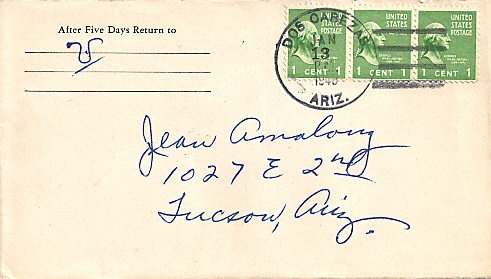 After Five Days Return to
UNITED STATES POSTAGE
1 CENT 1
UNITED STATES POSTAGE
1 CENT 1
UNITED STATES POSTAGE
1 CENT 1
DOS CABEZAS
JAN
13
ARIZ.
Jean Amalong
1027 E 2nd
Tucson, Ariz.